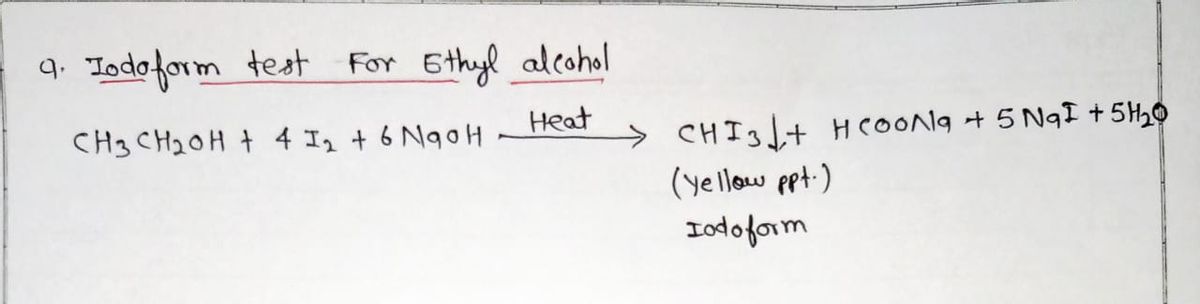 9. Iodoform test For Ethyl alcohol
CH₃CH₂OH + 4 I₂ + 6 NaOH —Heat→ CHI₃↓ + HCOONa + 5 NaI + 5H₂O
(Yellow ppt.)
Iodoform